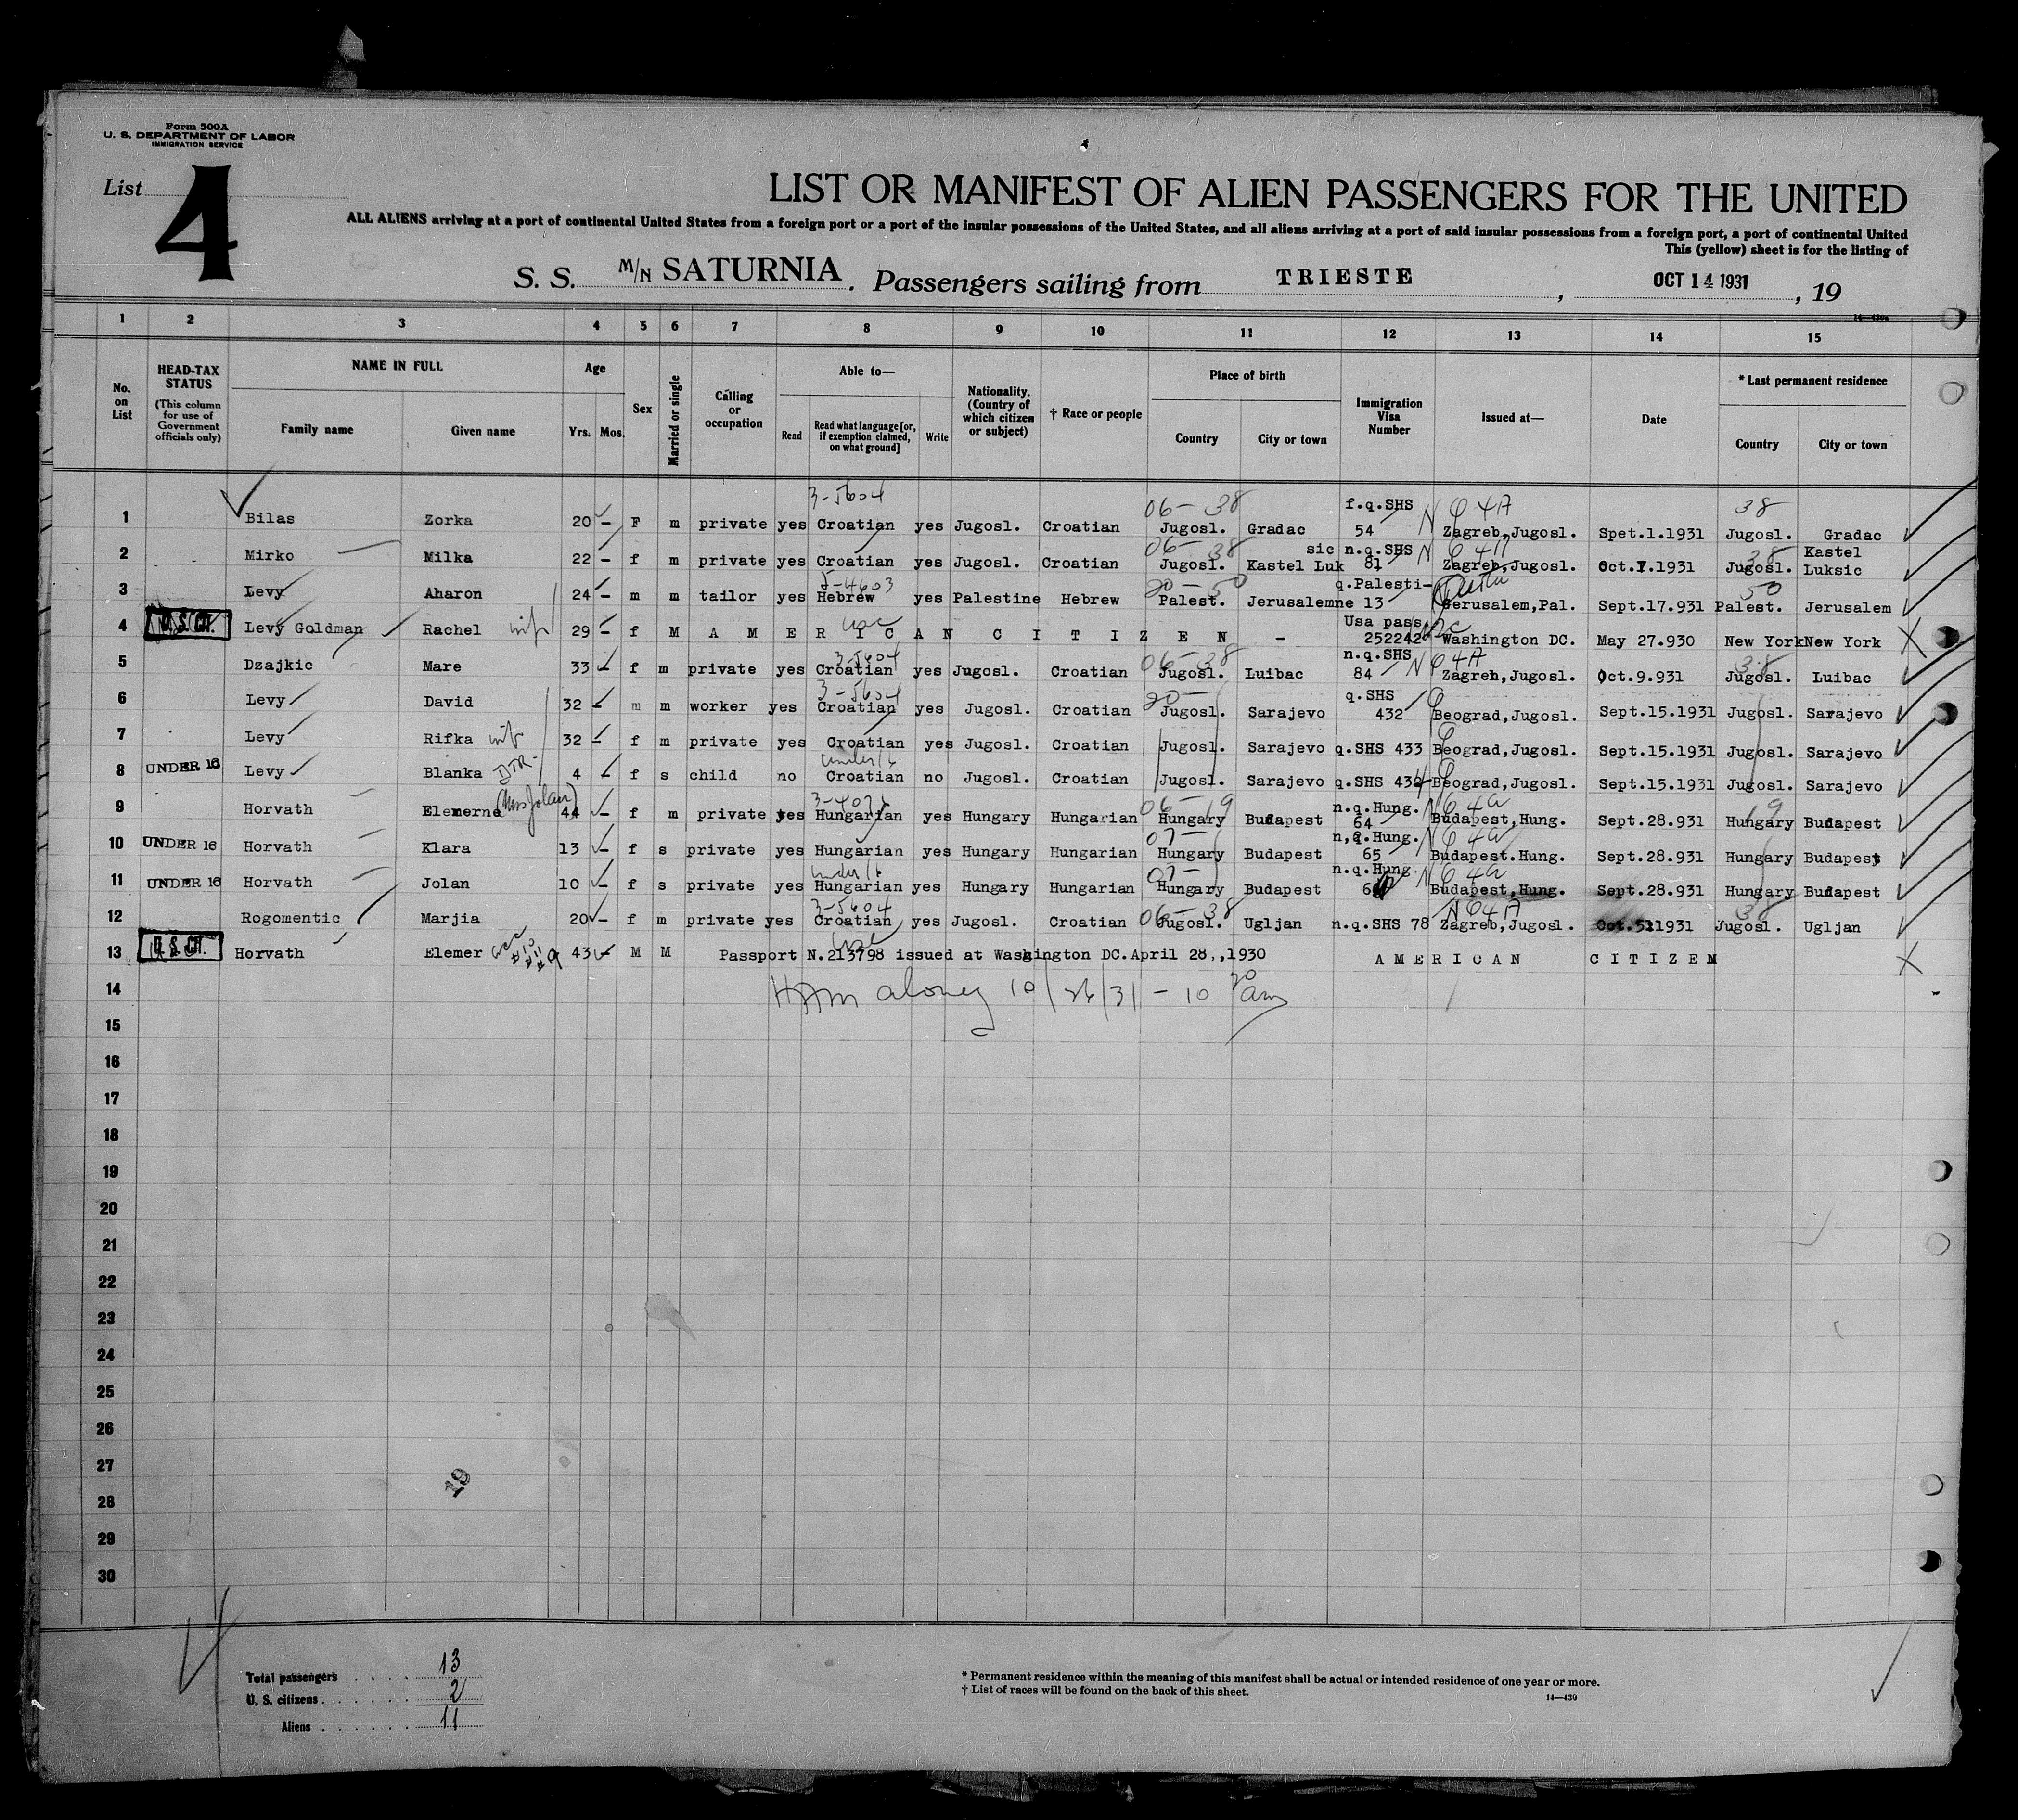 Form 500A
U. S. DEPARTMENT OF LABOR
IMMIGRATION SERVICE
List 4
LIST OR MANIFEST OF ALIEN PASSENGERS FOR THE UNITED
ALL ALIENS arriving at a port of continental United States from a foreign port or a port of the insular possessions of the United States, and all aliens arriving at a port of said insular possessions from a foreign port, a port of continental United
This (yellow) sheet is for the listing of
S. S. M/N SATURNIA. Passengers sailing from TRIESTE, OCT 14 1931, 19
1 2 3 4 5 6 7 8 9 10 11 12 13 14 15
No. on List
HEAD-TAX STATUS
(This column for use of Government officials only)
NAME IN FULL
Family name Given name
Age
Yrs. Mos.
Sex
Married or single
Calling or occupation
Able to—
Read
Read what language [or, if exemption claimed, on what ground]
Write
Nationality. (Country of which citizen or subject)
† Race or people
Place of birth
Country City or town
Immigration Visa Number
Issued at—
Date
* Last permanent residence
Country City or town
3-5604 06-38 f.q.SHS N 38
1 Bilas Zorka 20 - F m private yes Croatian yes Jugosl. Croatian Jugosl. Gradac 54 Zagreb,Jugosl. Spet.1.1931 Jugosl. Gradac
06- 38 sic n.q.SHS N 38 Kastel
2 Mirko Milka 22 - f m private yes Croatian yes Jugosl. Croatian Jugosl. Kastel Luk 81 Zagreb,Jugosl. Oct.7.1931 Jugosl. Luksic
20-50 q.Palesti- 50
3 Levy Aharon 24 - m m tailor yes Hebrew yes Palestine Hebrew Palest. Jerusalemne 13 Jerusalem,Pal. Sept.17.931 Palest. Jerusalem
usc Usa pass.
4 U.S.CIT. Levy Goldman Rachel wif 29 - f M A M E R I C A N C I T I Z E N - 252242 Washington DC. May 27.930 New York New York
3-5604 06-38 n.q.SHS N 38
5 Dzajkic Mare 33 - f m private yes Croatian yes Jugosl. Croatian Jugosl. Luibac 84 Zagreb,Jugosl. Oct.9.931 Jugosl. Luibac
3-5604 20- q.SHS
6 Levy David 32 - m m worker yes Croatian yes Jugosl. Croatian Jugosl. Sarajevo 432 Beograd,Jugosl. Sept.15.1931 Jugosl. Sarajevo
7 Levy Rifka wif 32 - f m private yes Croatian yes Jugosl. Croatian Jugosl. Sarajevo q.SHS 433 Beograd,Jugosl. Sept.15.1931 Jugosl. Sarajevo
under 16
8 UNDER 16 Levy Blanka DTR- 4 - f s child no Croatian no Jugosl. Croatian Jugosl. Sarajevo q.SHS 434 Beograd,Jugosl. Sept.15.1931 Jugosl. Sarajevo
(Mrs Jolan) 06-19 n.q.Hung. 19
9 Horvath Elemerne 44 - f m private yes Hungarian yes Hungary Hungarian Hungary Budapest 64 Budapest,Hung. Sept.28.931 Hungary Budapest
07- n,q.Hung.
10 UNDER 16 Horvath Klara 13 - f s private yes Hungarian yes Hungary Hungarian Hungary Budapest 65 Budapest.Hung. Sept.28.931 Hungary Budapest
under 16 07- n.q.Hung.
11 UNDER 16 Horvath Jolan 10 - f s private yes Hungarian yes Hungary Hungarian Hungary Budapest Budapest,Hung. Sept.28.931 Hungary Budapest
3-5604 06-38 N 38
12 Rogomentic Marjia 20 - f m private yes Croatian yes Jugosl. Croatian Jugosl. Ugljan n.q.SHS 78 Zagreb,Jugosl. Jugosl. Ugljan
usc
13 U.S.CIT. Horvath Elemer #10 #11 #9 43 M M Passport N.213798 issued at Washington DC.April 28,,1930 A M E R I C A N C I T I Z E N
14 10/26/31 - 10 30 am
15
16
17
18
19
20
21
22
23
24
25
26
27
28
29
30
19
Total passengers . . . . 13
U. S. citizens . . . . . . 2
Aliens . . . . . . 11
* Permanent residence within the meaning of this manifest shall be actual or intended residence of one year or more.
† List of races will be found on the back of this sheet.
14—430